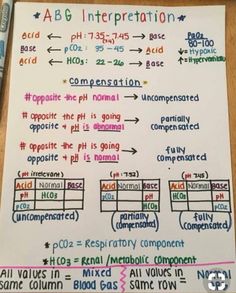 *ABG Interpretation*
Acid ← pH: 7.35-7.45 → Base
PaO2
80-100
Base ← pCO2: 35-45 → Acid
↓= Hypoxic
Acid ← HCO3: 22-26 → Base
↑= Hyperventilating
*Compensation*
#opposite the pH normal → uncompensated
#opposite the pH is going
opposite + pH is abnormal → partially compensated
#opposite the pH is going
opposite + pH is normal → fully compensated
(pH irrelevant)
Acid Normal Base
pH HCO3
(uncompensated)
Acid Normal Base
pH
HCO3
(partially compensated)
Acid Normal Base
pH
HCO3
(fully compensated)
*pCO2 = Respiratory component
*HCO3 = Renal/Metabolic component
All values in same column = Mixed Blood Gas
All values in same row = Normal